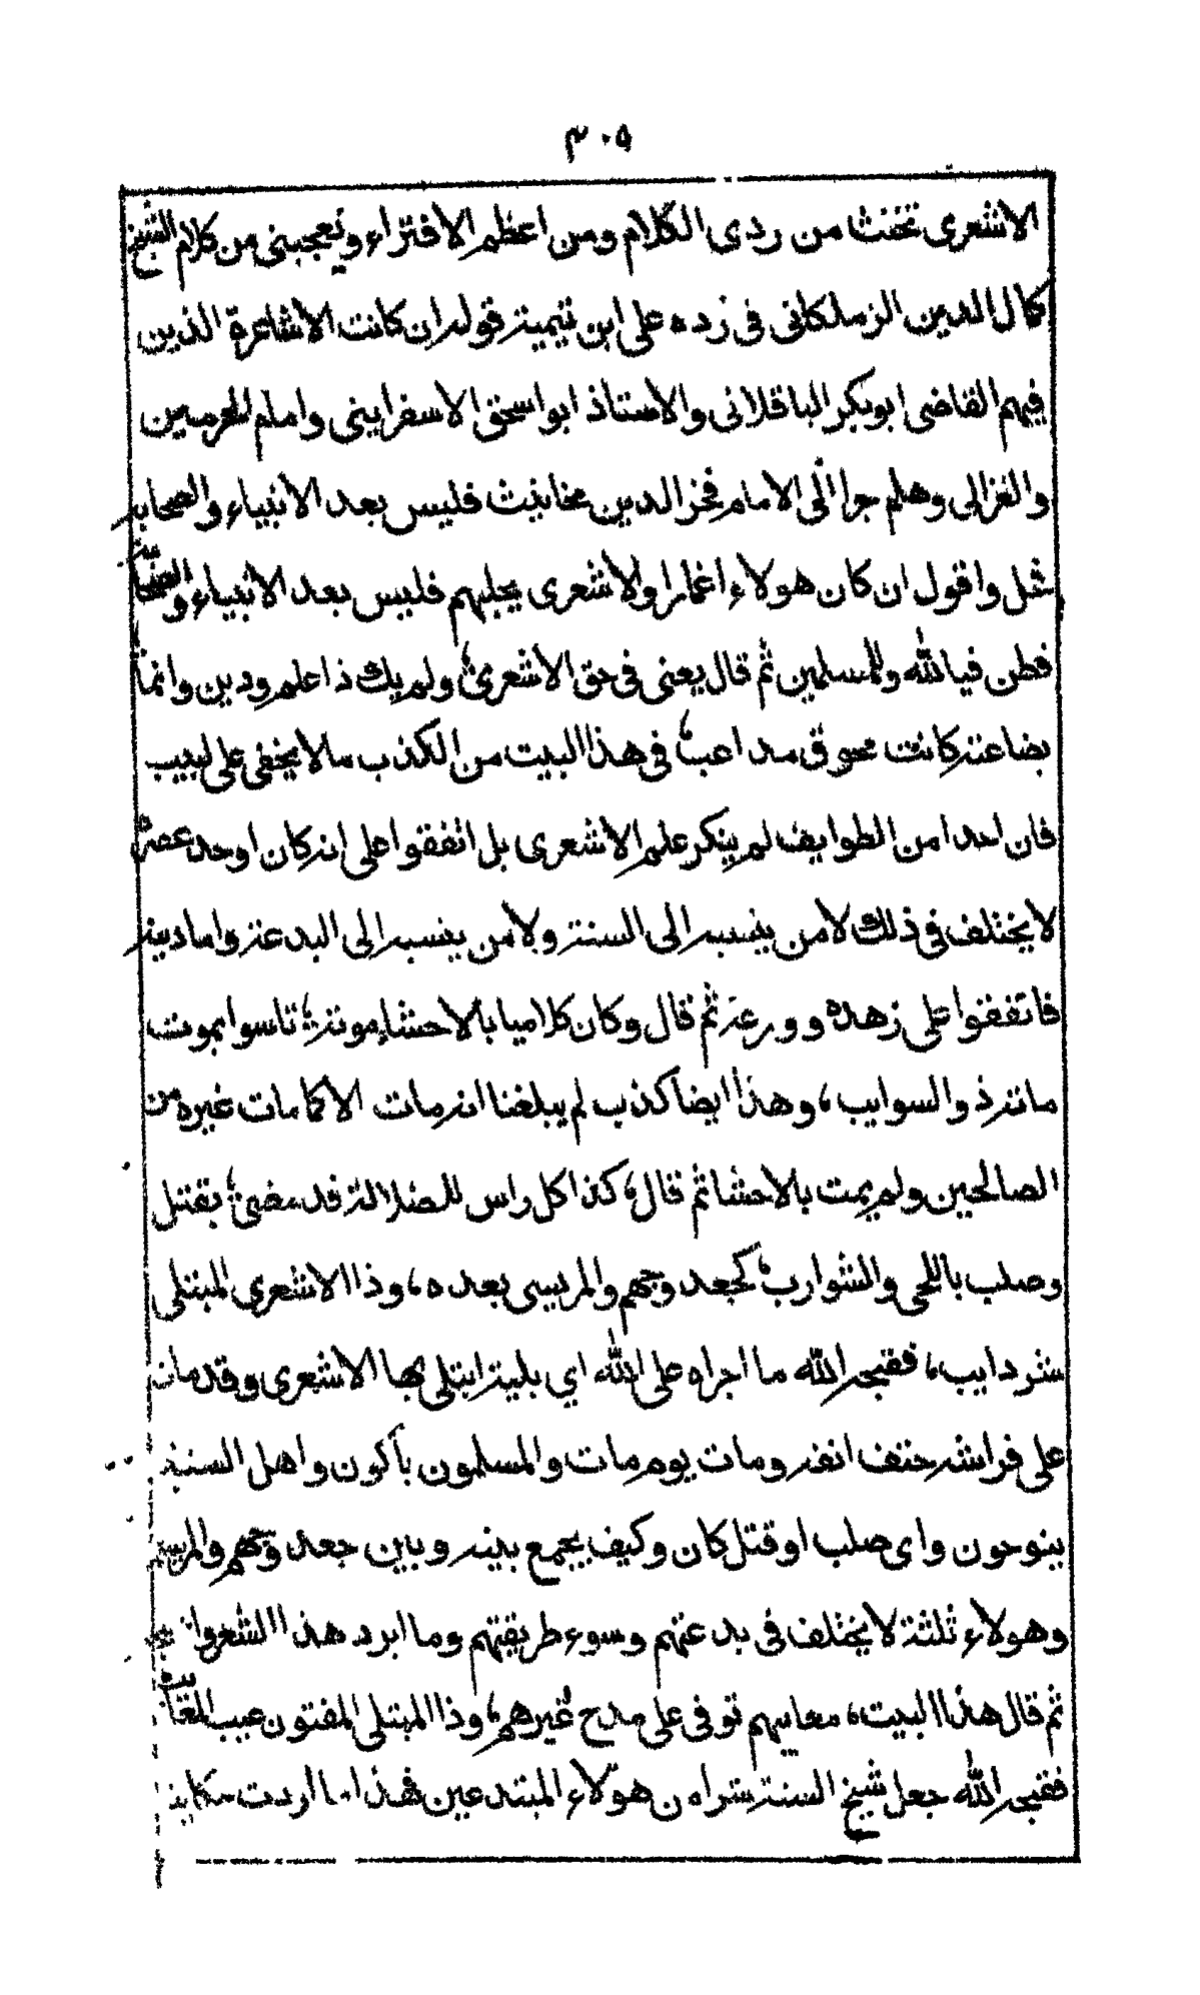 ٣٠٥
الاشعرى تخنثا من ردى الكلام ومن اعظم الافتراء ويعجبنى من كلام الشيخ
كمال الدين الزملكانى فى رده على ابن تيمية قوله ان كانت الاشاعرة الذين
فيهم القاضى ابو بكر الباقلانى والاستاذ ابو اسحق الاسفراينى وامام الحرمين
والغزالى وهلم جرا الى الامام فخر الدين مخانيث فليس بعد الانبياء والصحابة
فحل واقول ان كان هولاء اغمارا والاشعرى يخلبهم فليس بعد الانبياء والصحابة
فطن فيا لله وللمسلمين ثم قال يعنى فى حق الاشعرى؛ ولم يك ذا علم ودين وانما
بضاعته كانت مداعب؛ فى هذا البيت من الكذب ما لا يخفى على لبيب
فان احدا من الطوايف لم ينكر علم الاشعرى بل اتفقوا على انه كان اوحد عصره
لا يختلف فى ذلك لا من ينسبه الى السنة ولا من ينسبه الى البدعة واما دينه
فاتفقوا على زهده وورعه ثم قال وكان كلاميا بالاحشاء موته؛ باسوا موت
ماته ذو السوايب، وهذا ايضا كذب لم يبلغنا انه مات الا كما مات غيره من
الصالحين ولم يمت بالاحشا ثم قال، كذا كل راس للضلالة قد مضى؛ بقتل
وصلب باللحى والشوارب؛ كجعد وجهم والمريسى بعده، وذا الاشعرى المبتلى
شر دايب، فقبحه الله ما اجراه على الله اي بلية ابتلى بها الاشعرى وقد مات
على فراشه حتف انفه ومات يوم مات والمسلمون باكون واهل السنة
ينوحون واى صلب او قتل كان وكيف يجمع بينه وبين جعد وجهم والمريسى
وهولاء ثلثة لا يختلف فى بدعتهم وسوء طريقتهم وما ابرد هذا الشعر
ثم قال هذا البيت، معايبهم توفى على مدح غيرهم؛ وذا المبتلى المفتون عيب المعايب
فقبحه الله جعل شيخ السنة شرا من هولاء المبتدعين فهذا ما اردت حكايته